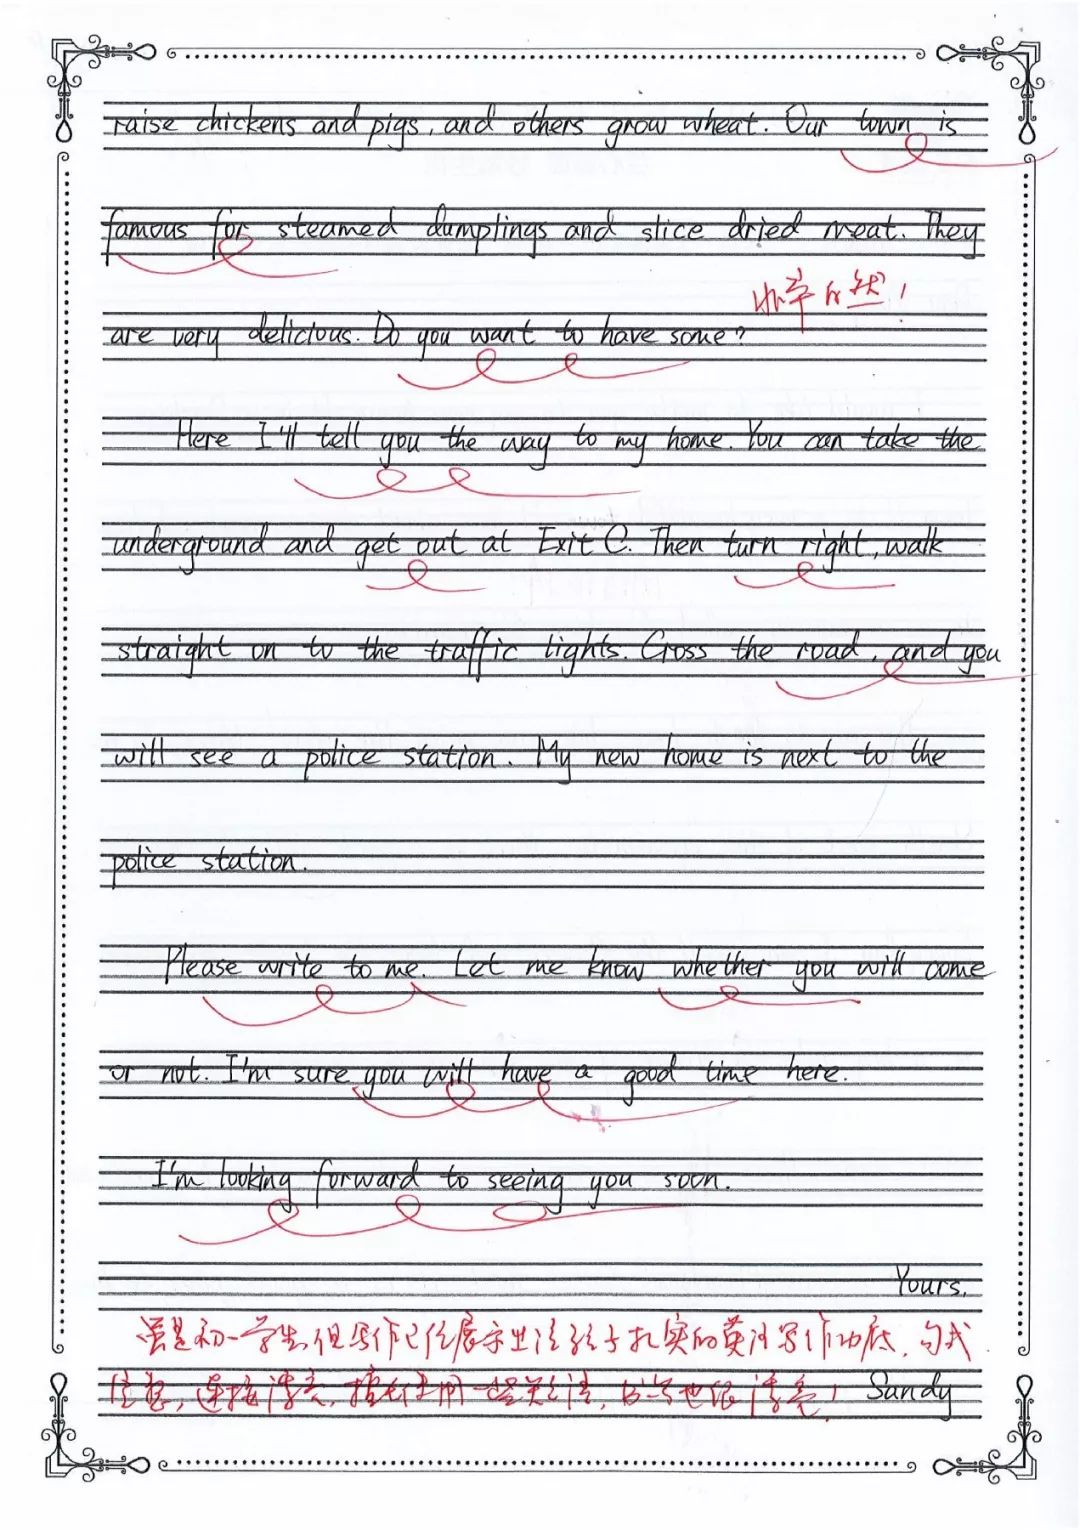 raise chickens and pigs, and others grow wheat. Our town is
famous for steamed dumplings and slice dried meat. They
自然!
are very delicious. Do you want to have some?
Here I'll tell you the way to my home. You can take the
underground and get out at Exit C. Then turn right, walk
straight on to the traffic lights. Cross the road, and you
will see a police station. My new home is next to the
police station.
Please write to me. Let me know whether you will come
or not. I'm sure you will have a good time here.
I'm looking forward to seeing you soon.
Yours,
虽是初一学生,但写作已经展示出该孩子扎实的英语写作功底,句式
连接清晰,使用一些关联,书写也很漂亮!
Sandy